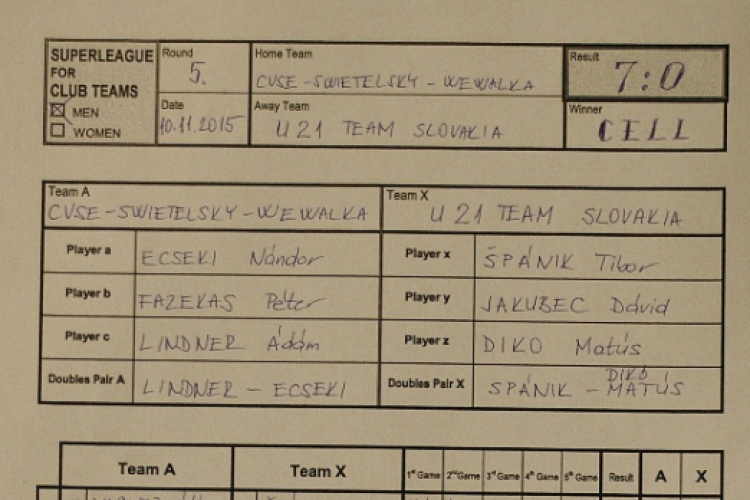 SUPERLEAGUE FOR CLUB TEAMS
☒ MEN
☐ WOMEN
Round 5.
Date 10.11.2015
Home Team CVSE-SWIETELSKY-WEWALKA
Away Team U 21 TEAM SLOVAKIA
Result 7:0
Winner CELL
Team A CVSE-SWIETELSKY-WEWALKA
Team X U 21 TEAM SLOVAKIA
Player a ECSEKI Nándor
Player x ŠPÁNIK Tibor
Player b FAZEKAS Péter
Player y JAKUBEC Dávid
Player c LINDNER Ádám
Player z DIKO Matús
Doubles Pair A LINDNER - ECSEKI
Doubles Pair X SPÁNIK - DIKO MATÚS
Team A Team X 1st Game 2nd Game 3rd Game 4th Game 5th Game Result A X